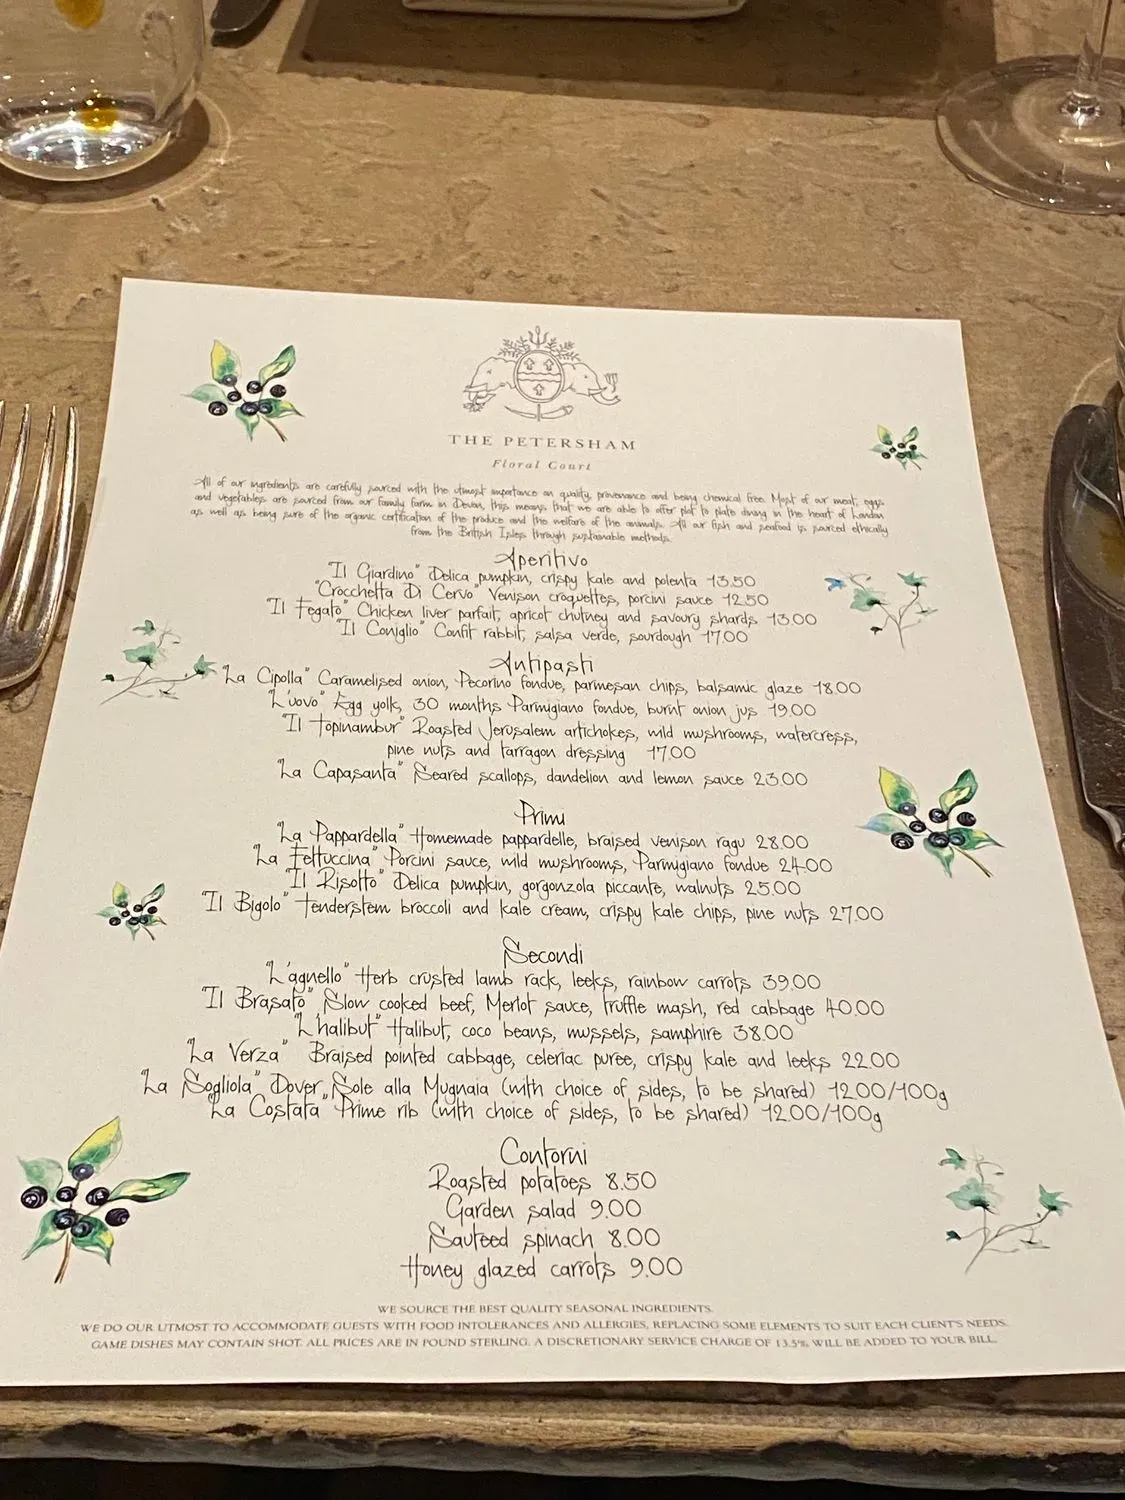 THE PETERSHAM
Floral Court
All of our ingredients are carefully sourced with the utmost importance on quality, provenance and being chemical free. Most of our meat, eggs
and vegetables are sourced from our family farm in Devon, this means that we are able to offer plot to plate dining in the heart of London
as well as being sure of the organic certification of the produce and the welfare of the animals. All our fish and seafood is sourced ethically
from the British Isles through sustainable methods.
Aperitivo
"Il Giardino" Delica pumpkin, crispy kale and polenta 13.50
"Crocchetta Di Cervo" Venison croquettes, porcini sauce 12.50
"Il Fegato" Chicken liver parfait, apricot chutney and savoury shards 13.00
"Il Coniglio" Confit rabbit, salsa verde, sourdough 17.00
Antipasti
"La Cipolla" Caramelised onion, Pecorino fondue, parmesan chips, balsamic glaze 18.00
"L'uovo" Egg yolk, 30 months Parmigiano fondue, burnt onion jus 19.00
"Il Topinambur" Roasted Jerusalem artichokes, wild mushrooms, watercress,
pine nuts and tarragon dressing 17.00
"La Capasanta" Seared scallops, dandelion and lemon sauce 23.00
Primi
"La Pappardella" Homemade pappardelle, braised venison ragu 28.00
"La Fettuccina" Porcini sauce, wild mushrooms, Parmigiano fondue 24.00
"Il Risotto" Delica pumpkin, gorgonzola piccante, walnuts 25.00
"Il Bigolo" Tenderstem broccoli and kale cream, crispy kale chips, pine nuts 27.00
Secondi
"L'agnello" Herb crusted lamb rack, leeks, rainbow carrots 39.00
"Il Brasato" Slow cooked beef, Merlot sauce, truffle mash, red cabbage 40.00
"L'halibut" Halibut, coco beans, mussels, samphire 38.00
"La Verza" Braised pointed cabbage, celeriac puree, crispy kale and leeks 22.00
"La Sogliola" Dover Sole alla Mugnaia (with choice of sides, to be shared) 12.00/100g
"La Costata" Prime rib (with choice of sides, to be shared) 12.00/100g
Contorni
Roasted potatoes 8.50
Garden salad 9.00
Sauteed spinach 8.00
Honey glazed carrots 9.00
WE SOURCE THE BEST QUALITY SEASONAL INGREDIENTS.
WE DO OUR UTMOST TO ACCOMMODATE GUESTS WITH FOOD INTOLERANCES AND ALLERGIES, REPLACING SOME ELEMENTS TO SUIT EACH CLIENT'S NEEDS.
GAME DISHES MAY CONTAIN SHOT. ALL PRICES ARE IN POUND STERLING. A DISCRETIONARY SERVICE CHARGE OF 13.5% WILL BE ADDED TO YOUR BILL.